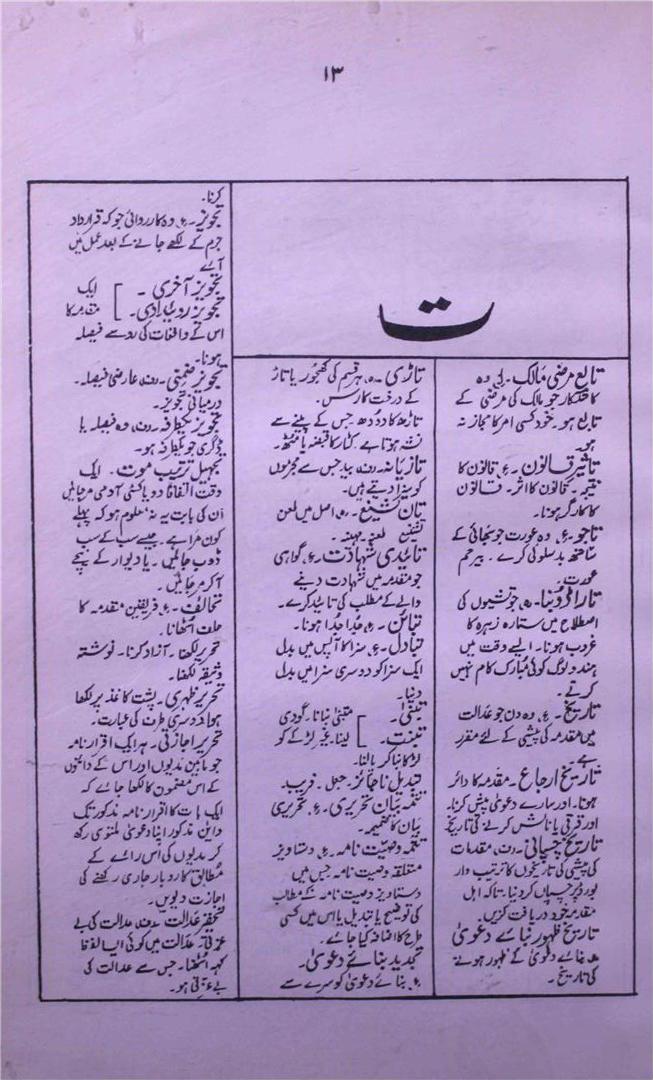 ۱۳
ت
تابع مرضی مالک۔ وہ
کاشتکار جو مالک کی مرضی کے
تابع ہو۔ خود کسی امر کا مجاز نہ
ہو۔
تاثیر قانون۔ ع، قانون کا
نتیجہ۔ قانون کا اثر۔ قانون
کا کارگر ہونا۔
تاجو۔ وہ عورت جو بھائی کے
ساتھ بدسلوکی کرے۔ بیرحم
عورت۔
تارا ڈوبنا۔ ہ، جوتشیوں کی
اصطلاح میں ستارہ زہرہ کا
غروب ہونا۔ ایسے وقت میں
ہندو لوگ کوئی مبارک کام نہیں
کرتے۔
تاریخ۔ ع، وہ دن جو عدالت
میں مقدمہ کی پیشی کے لئے مقرر
ہے
تاریخ ارجاع۔ مقدمہ کا دائر
ہونا۔ اور سارے دعویٰ پیش کرنا۔
اور قرقی یا نالش کرنے کی تاریخ
تاریخ چسپانی۔ مقدمات
کی پیشی کی تاریخوں کا ترتیب وار
بورڈ پر چسپاں کر دینا۔ تاکہ اہل
مقدمہ خود دریافت کرلیں۔
تاریخ ظہور بنائے دعویٰ
بنائے دعویٰ کے ظہور ہونے
کی تاریخ۔
تاڑی۔ ہ، ہر قسم کی کھجور یا تاڑ
کے درخت کا رس۔
تاڑھ کا دودھ جس کے پینے سے
نشہ ہوتا ہے کٹار کا قبضہ یا مٹھ۔
تازیانہ۔ بید جس سے مجرموں
کو سزا دیتے ہیں۔
تان تشنیع۔ اصل میں لعن
تشنیع لعنہ۔ مہینہ۔
تائیدی شہادت۔ ع، گواہی
جو مقدمہ میں شہادت دینے
والے کے مطلب کی تائید کرے۔
تبائن۔ ع، جدا جدا ہونا۔
تبادل۔ ع، سزا کا آپس میں بدل
ایک سزا کو دوسری سزا میں بدل
دینا۔
تبنّی۔ متبنیٰ بنانا۔ گودی
تبنیت۔ لینا۔ غیر لڑکے کو
لڑکا بنا کر پالنا۔
تبدیل ناجائز۔ جعل۔ فریب۔
تتمہ بیان تحریری۔ ع، تحریری
بیان کا ضمیمہ۔
تتمہ وصیت نامہ۔ ع، دستاویز
متعلقہ وصیت نامہ۔ جس میں
دستاویز وصیت نامہ کے مطالب
کی توضیح یا تبدیل یا اس میں کسی
طرح کا اضافہ کیا جائے۔
تجدید بنائے دعویٰ۔
ع، بنائے دعویٰ کو سرے سے
کرنا۔
تجویز۔ ع، وہ کارروائی جو کہ قرارداد
جرم کے لکھے جانے کے بعد عمل میں
آئے
تجویز آخری۔ ایک
تجویز روئدادی۔ مقدمہ کا
اس کے واقعات کی رو سے فیصلہ
ہونا۔
تجویز ضمنی۔ عارضی فیصلہ۔
درمیانی تجویز۔
تجویز یکطرفہ۔ وہ فیصلہ یا
ڈگری جو یکطرفہ ہو۔
تجہیل ترتیب موت۔ ایک
وقت اتفاقاً دو یا کئی آدمی مر جائیں
اُن کی بابت یہ نہ معلوم ہو کہ پہلے
کون مرا ہے۔ جیسے سب کے سب
ڈوب جائیں۔ یا دیوار کے نیچے
آکر مر جائیں۔
تحالف۔ ع، فریقین مقدمہ کا
حلف اُٹھانا۔
تحریر لکھنا۔ آزاد کرنا۔ نوشتہ
وثیقہ لکھنا۔
تحریر ظہری۔ پشت کاغذ پر لکھا
ہوا۔ دوسری طرف کی عبارت۔
تحریر اجازتی۔ ہر ایک اقرار نامہ
جو مابین مدیوں اور اس کے دائنوں
کے اس مضمون کا لکھا جائے کہ
ایک بات کا اقرار نامہ مذکور تک
داین مذکور اپنا دعویٰ ملتوی رکھ
کر مدیوں کی اس رائے کے
مطابق کاروبار جاری رکھنے کی
اجازت دیویں۔
تحقیر عدالت۔ عدالت کی بے
عزتی۔ عدالت میں کوئی ایسا لفظ
کہہ اُٹھنا۔ جس سے عدالت کی
بے عزتی ہو۔